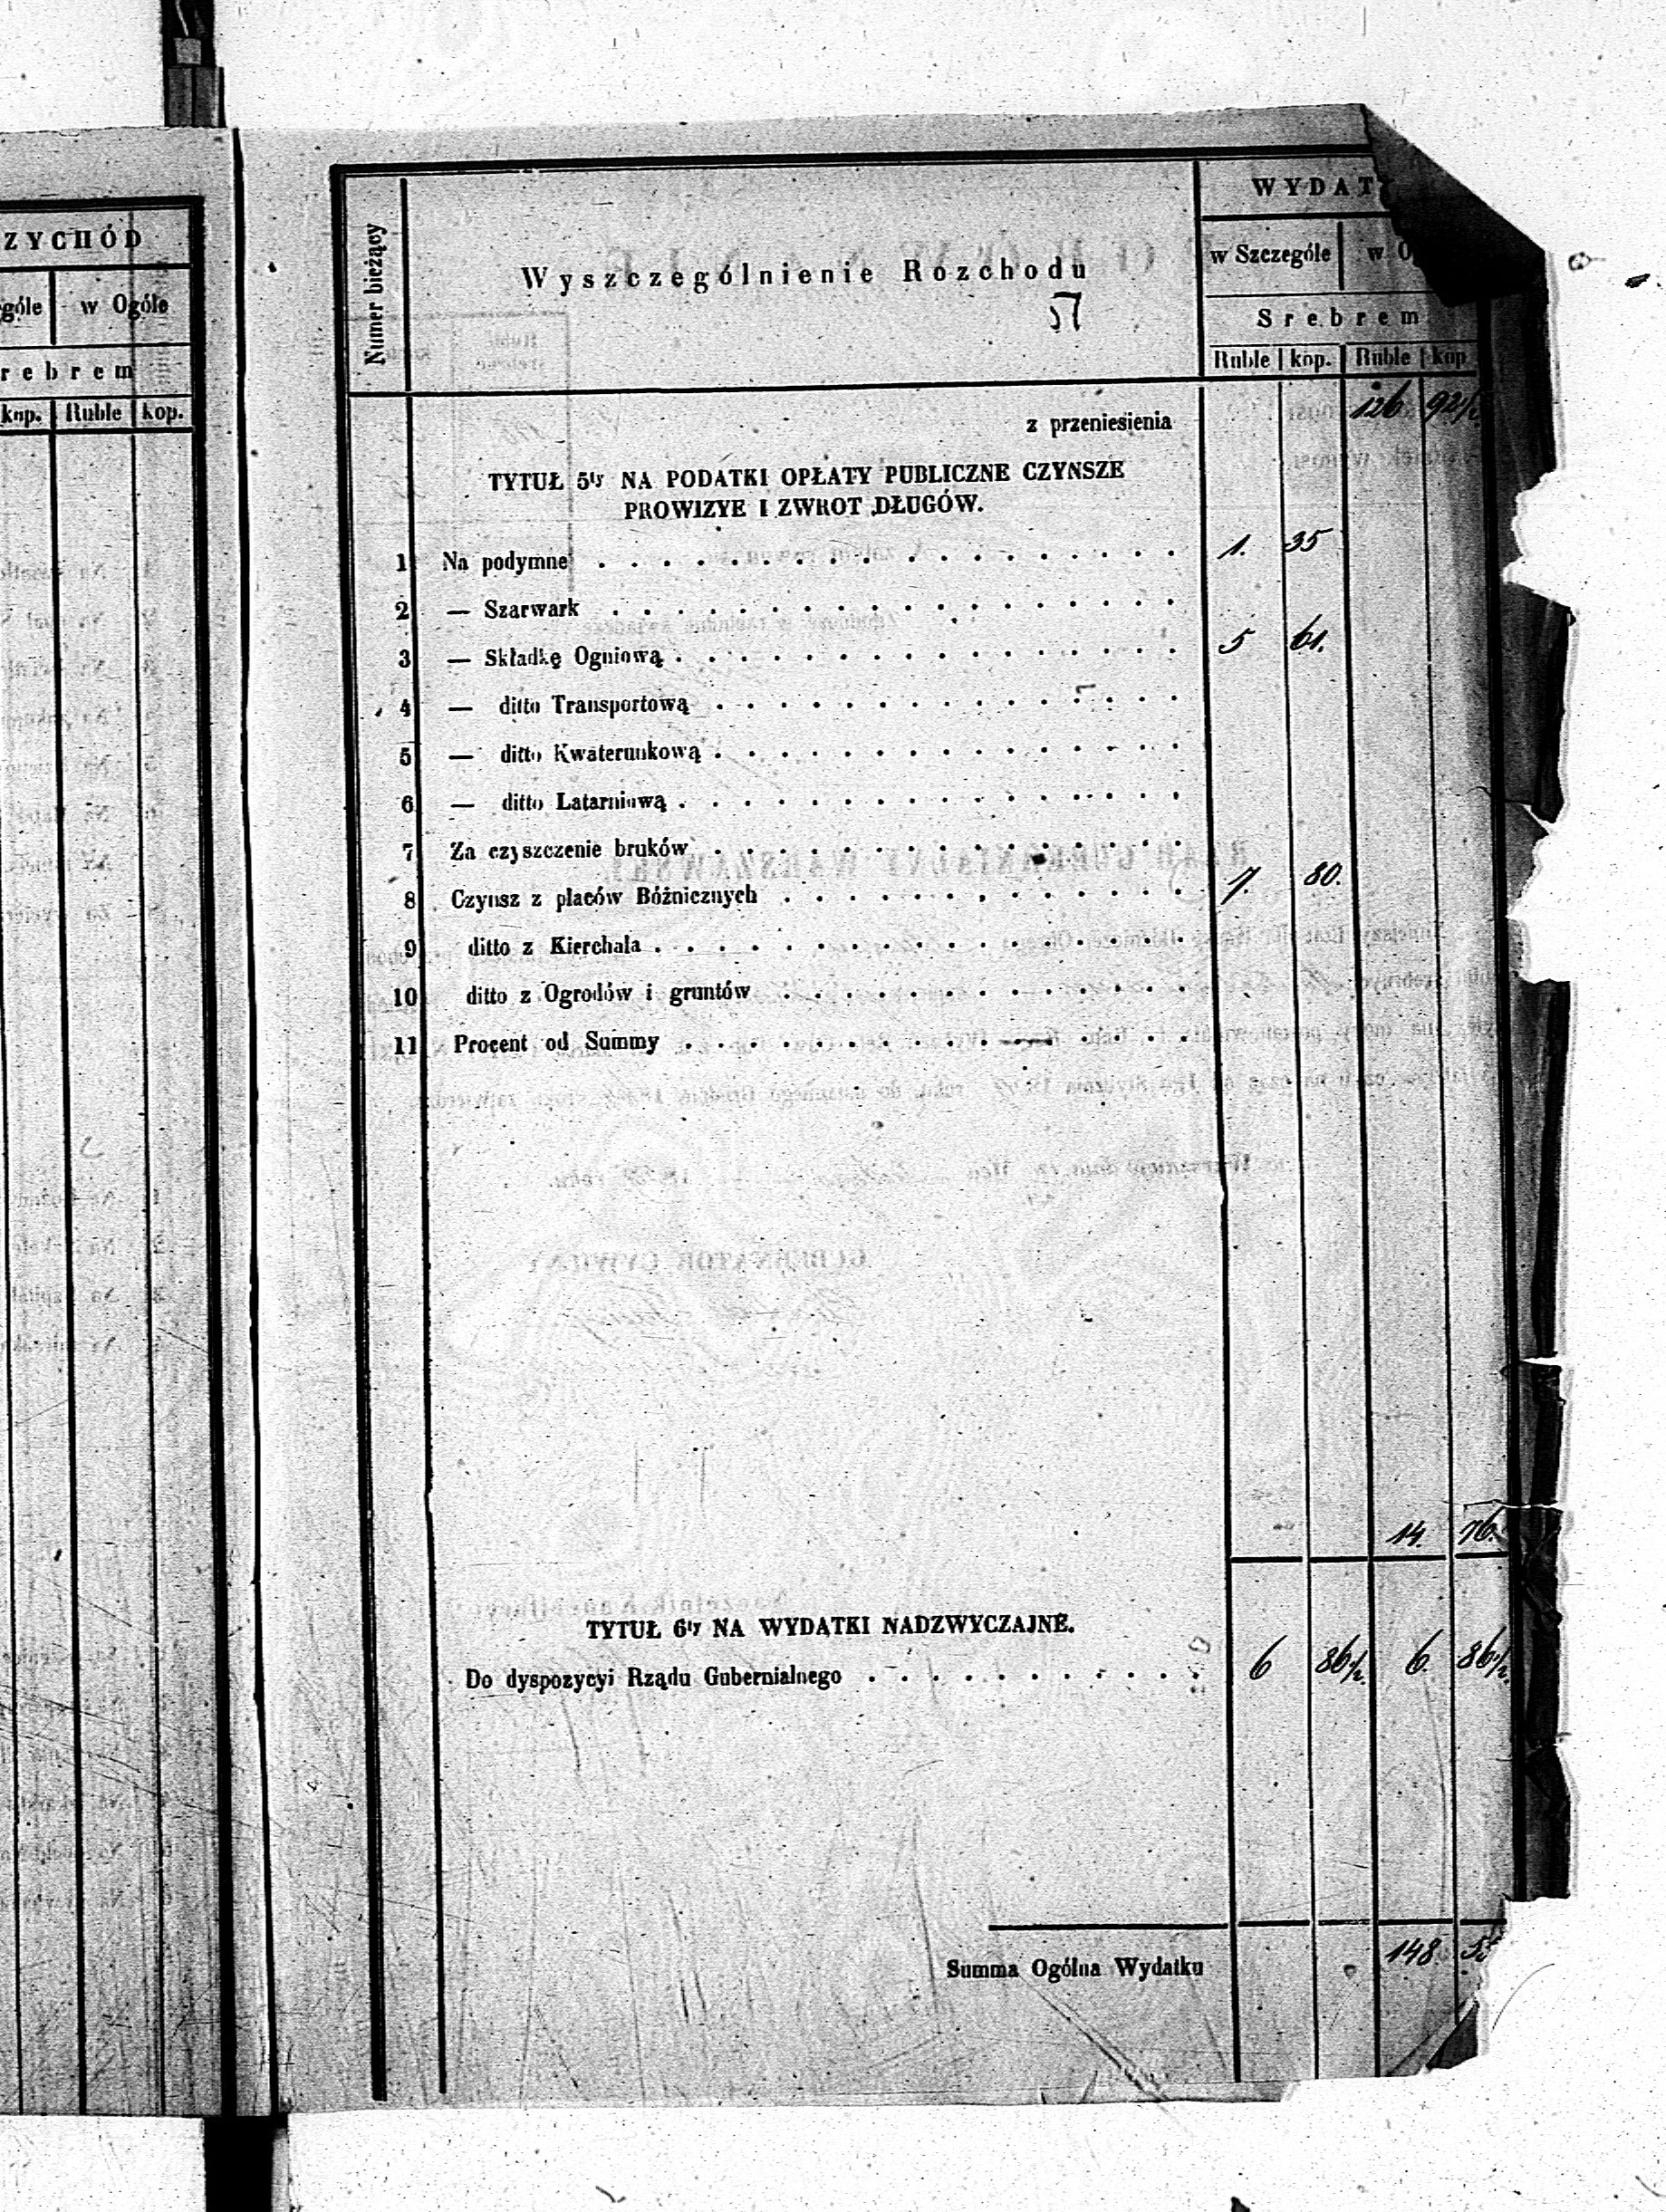 ZYCHÓD
góle w Ogóle
rebrem
kop. Ruble kop.
WYDAT
Numer bieżący
Wyszczególnienie Rozchodu
w Szczególe w O
Srebrem
Ruble kop. Ruble kop
z przeniesienia 126 92½
TYTUŁ 5ty NA PODATKI OPŁATY PUBLICZNE CZYNSZE
PROWIZYE I ZWROT DŁUGÓW.
1 Na podymne . . . . . . . . . . . . . . . . . . 1. 35
2 — Szarwark . . . . . . . . . . . . . . . . . .
3 — Składkę Ogniową . . . . . . . . . . . . . . . . 5 61.
4 — ditto Transportową . . . . . . . . . . . . . . .
5 — ditto Kwaterunkową . . . . . . . . . . . . . . .
6 — ditto Latarniową . . . . . . . . . . . . . . . .
7 Za czyszczenie bruków . . . . . . . . . . . . . . .
8 Czynsz z placów Bóżnicznych . . . . . . . . . . . . . 7. 80.
9 ditto z Kierchala . . . . . . . . . . . . . . . . .
10 ditto z Ogrodów i gruntów . . . . . . . . . . . . .
11 Procent od Summy . . . . . . . . . . . . . . . .
14. 76.
TYTUŁ 6ty NA WYDATKI NADZWYCZAJNE.
Do dyspozycyi Rządu Gubernialnego . . . . . . . . . . . 6 86½ 6. 86½
Summa Ogólna Wydatku 148.